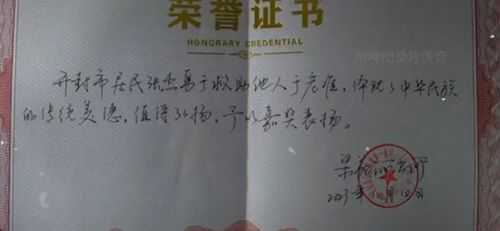 荣誉证书
HONORARY CREDENTIAL
阿坤纪录片传奇
开封市居民张杰勇于救助他人于危难，体现了中华民族
的传统美德，值得弘扬，予以嘉奖表扬。
2023年